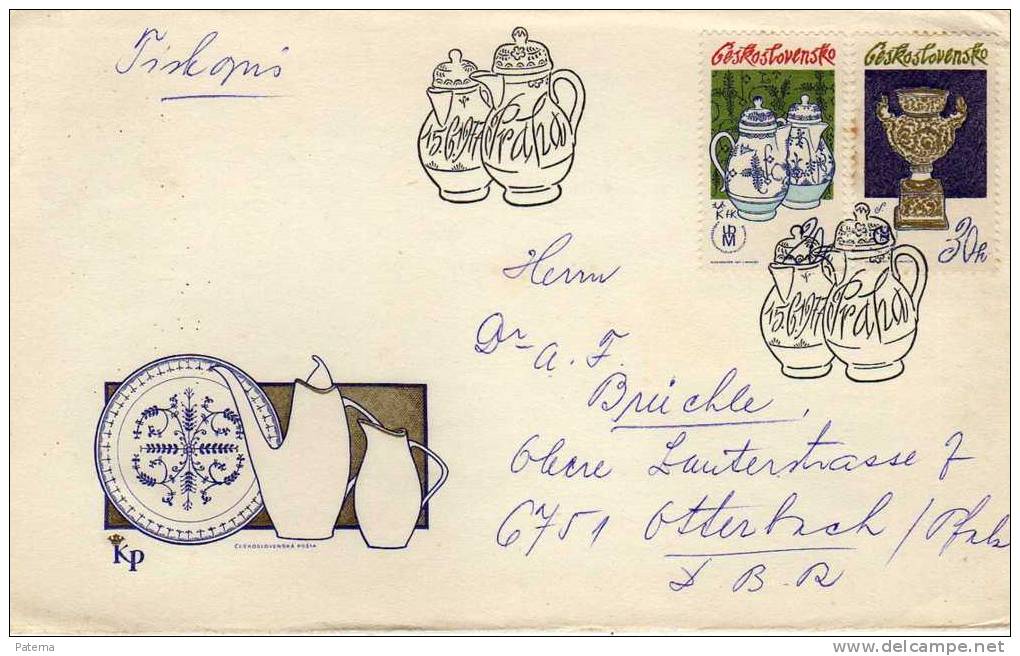 Tiskopis
15.6.1977 Praha
Československo
Československo
30h
15.6.1977 Praha
Herrn
Dr A. F.
Brüchle,
Obere Lauterstrasse 7
6751 Otterbach / Pfalz
D B R
ČESKOSLOVENSKÁ POŠTA
Kp
Paterna
http://www.delcampe.net